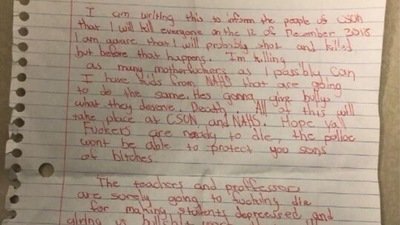 I am writing this to inform the people of CSUN
that I will kill everyone on the 12 of December 2018
I am aware that I will probably shot and killed
but before that happens. I'm killing
as many motherfuckers as I possibly can
I have kids from NAHS that are going
to do the same. Hes gonna give bullys
what they deserve. Death. All of this will
take place at CSUN and NAHS. Hope yall
Fuckers are ready to die, the police
wont be able to protect you sons
of bitches.
The teachers and proffessors
are surely going to fucking die
for making students depressed and
giving us bullshit